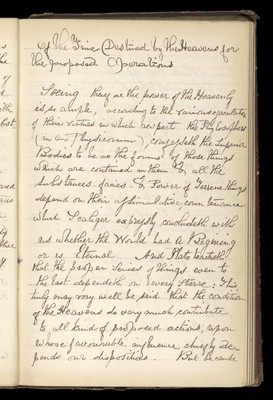 Of the Time Destined by the Heavens for
the proposed Operations
Seeing they are the power of the Heavenly
is so ample, according to the various
of their virtues in which respect the Phylosophers
(in Physicorum), confesseth the Superior
Bodies to be as the forms of those things
which are contained in them, all the
Substances faces & Power of Terrene things
depend on their assimulative countenance
which Scaliger expressly concludeth with
us whether the World had A Begining
or is Eternal. And Plato
that the proper Series of things even to
the last dependeth on every Starre: This
truly may very well be said that the condition
of the Heavens do very much contribute
to all kind of proposed actions, upon
whose favourable influence chiefly de-
pends our dispositions. But because